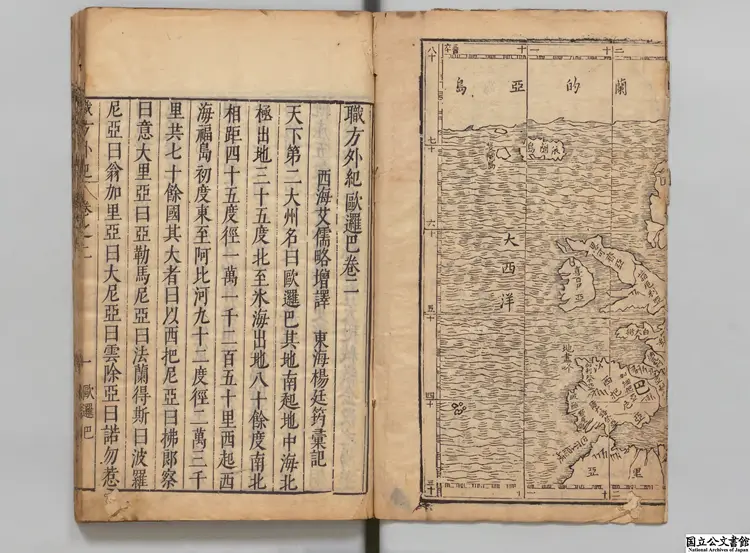 蘭的亞島
大西洋
八十
七十
六十
五十
四十
三十
職方外紀歐邏巴卷二
西海艾儒略增譯 東海楊廷筠彙記
天下第二大州名曰歐邏巴其地南起地中海北
極出地三十五度北至氷海出地八十餘度南北
相距四十五度徑一萬一千二百五十里西起西
海福島初度東至阿比河九十二度徑二萬三千
里共七十餘國其大者曰以西把尼亞曰拂郎察
曰意大里亞曰亞勒馬尼亞曰法蘭得斯曰波羅
尼亞曰翁加里亞曰大尼亞曰雲除亞曰諾勿惹
職方外紀 卷之二 一 歐邏巴
国立公文書館
National Archives of Japan